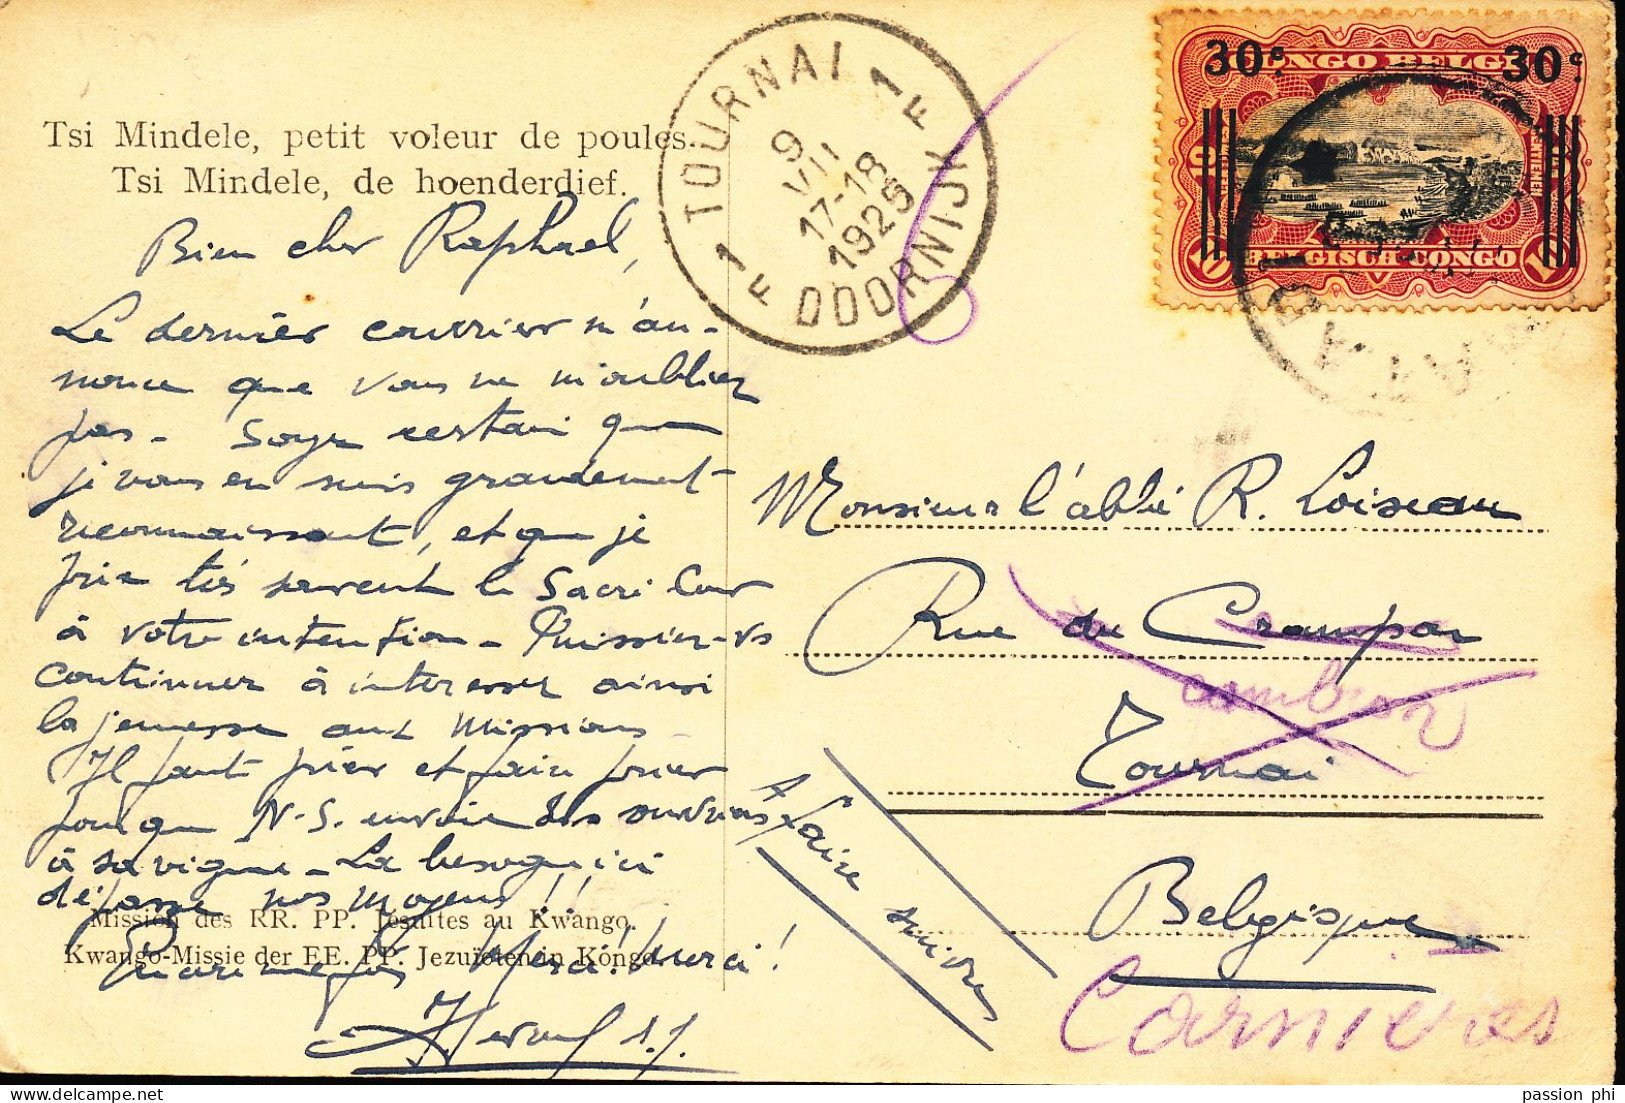 Tsi Mindele, petit voleur de poules.
Tsi Mindele, de hoenderdief.
Bien cher Raphael,
Le dernier courrier m'an-
nonce que vous ne m'oubliez
pas - Soyez certain que
je vous en suis grandement
reconnaissant, et que je
prie très souvent le Sacré Cœur
à votre intention - Puissiez-vs
continuer à intéresser ainsi
la jeunesse aux Missions
Il faut prier et faire prier
pour que N.-S. envoie des ouvriers
à sa vigne - La besogne ici
dépasse nos moyens!!
Mission des RR. PP. Jésuites au Kwango.
Kwango-Missie der EE. PP. Jezuïeten in Kongo.
Merci! Merci!
s.j.
TOURNAI 1
1 DOORNIJK
F F
9
VII
17-18
1925
30c. 30c.
CONGO BELGE
10 10
BELGISCH-CONGO
Monsieur l'abbé R. Loiseau
Rue du Crampon
cambron
Tournai
A faire suivre
Belgique
Carnières
passion phi